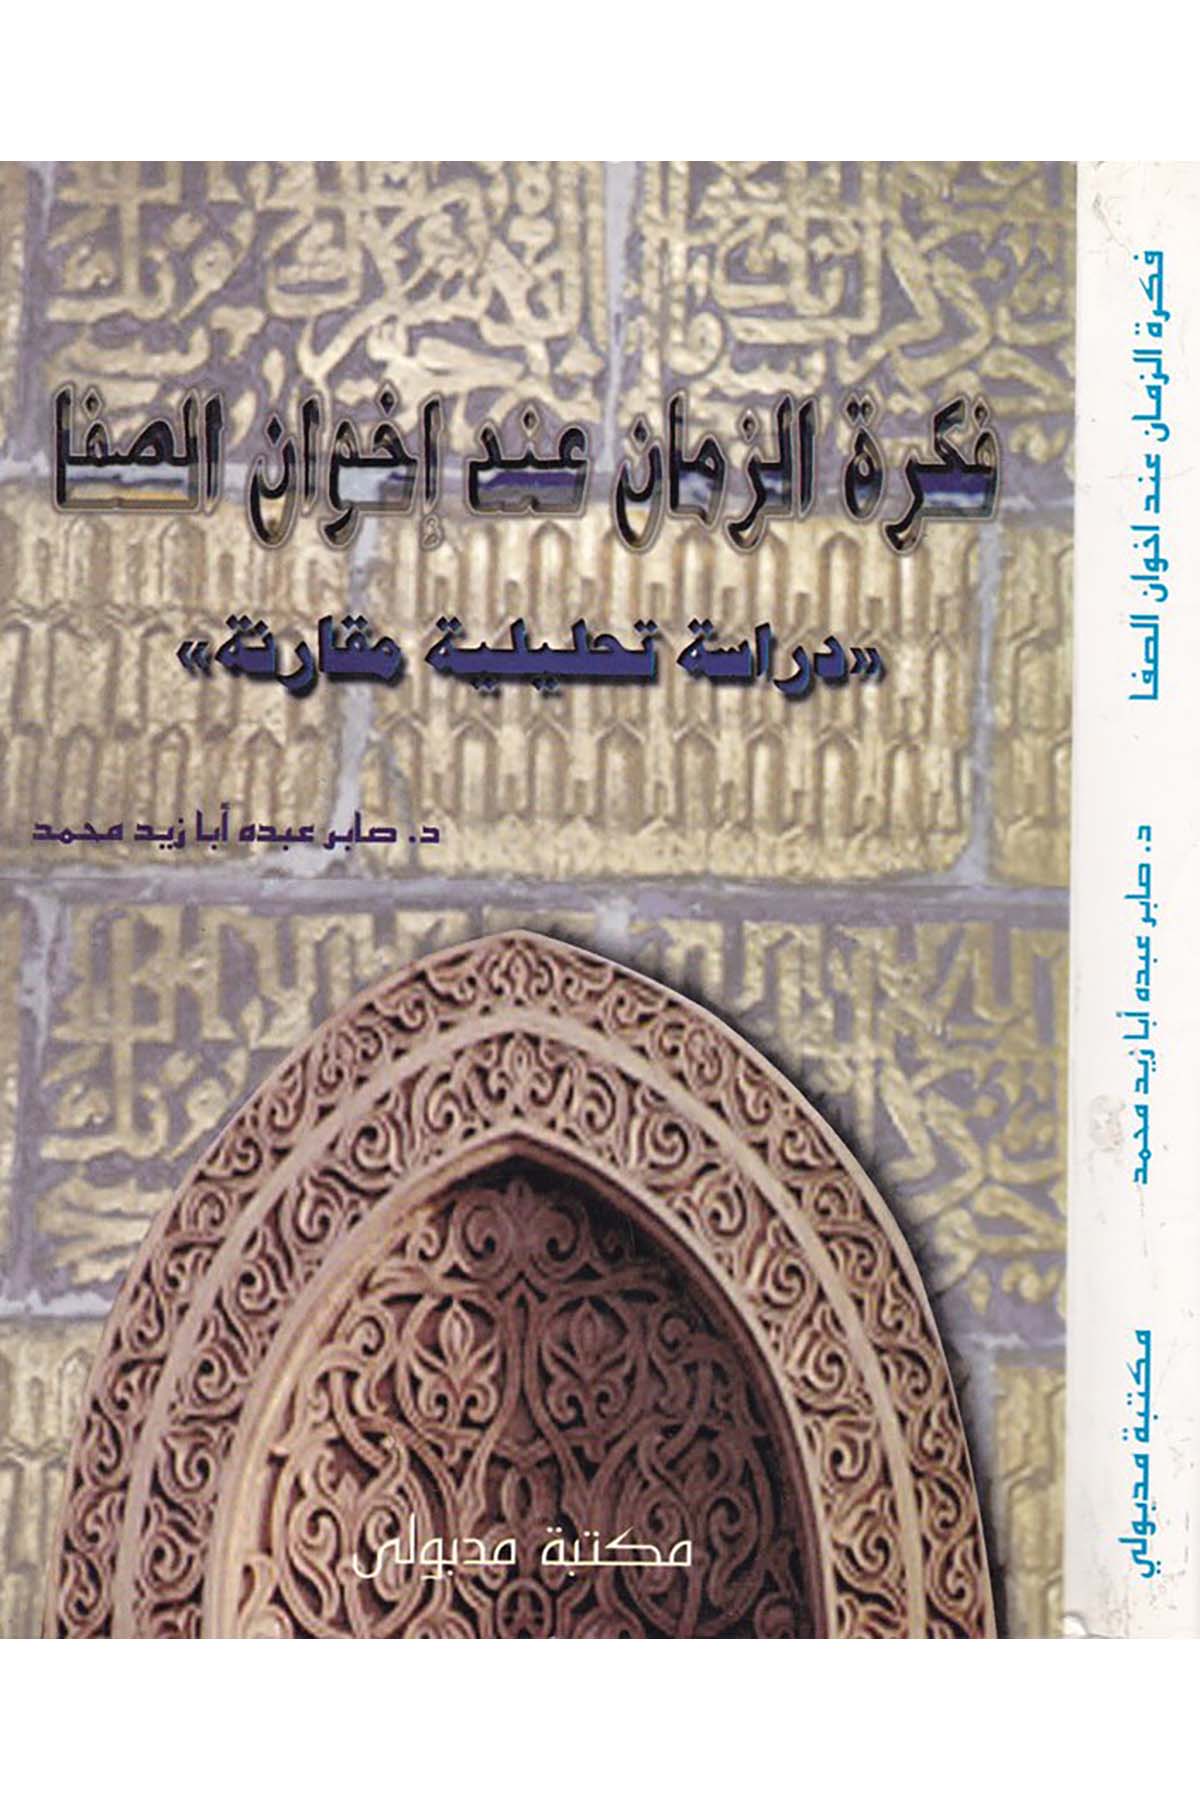 فكرة الزمان عند إخوان الصفا
«دراسة تحليلية مقارنة»
د. صابر عبده أبا زيد محمد
مكتبة مدبولي
فكرة الزمان عند اخوان الصفا
د. صابر عبده أبا زيد محمد
مكتبة مدبولي